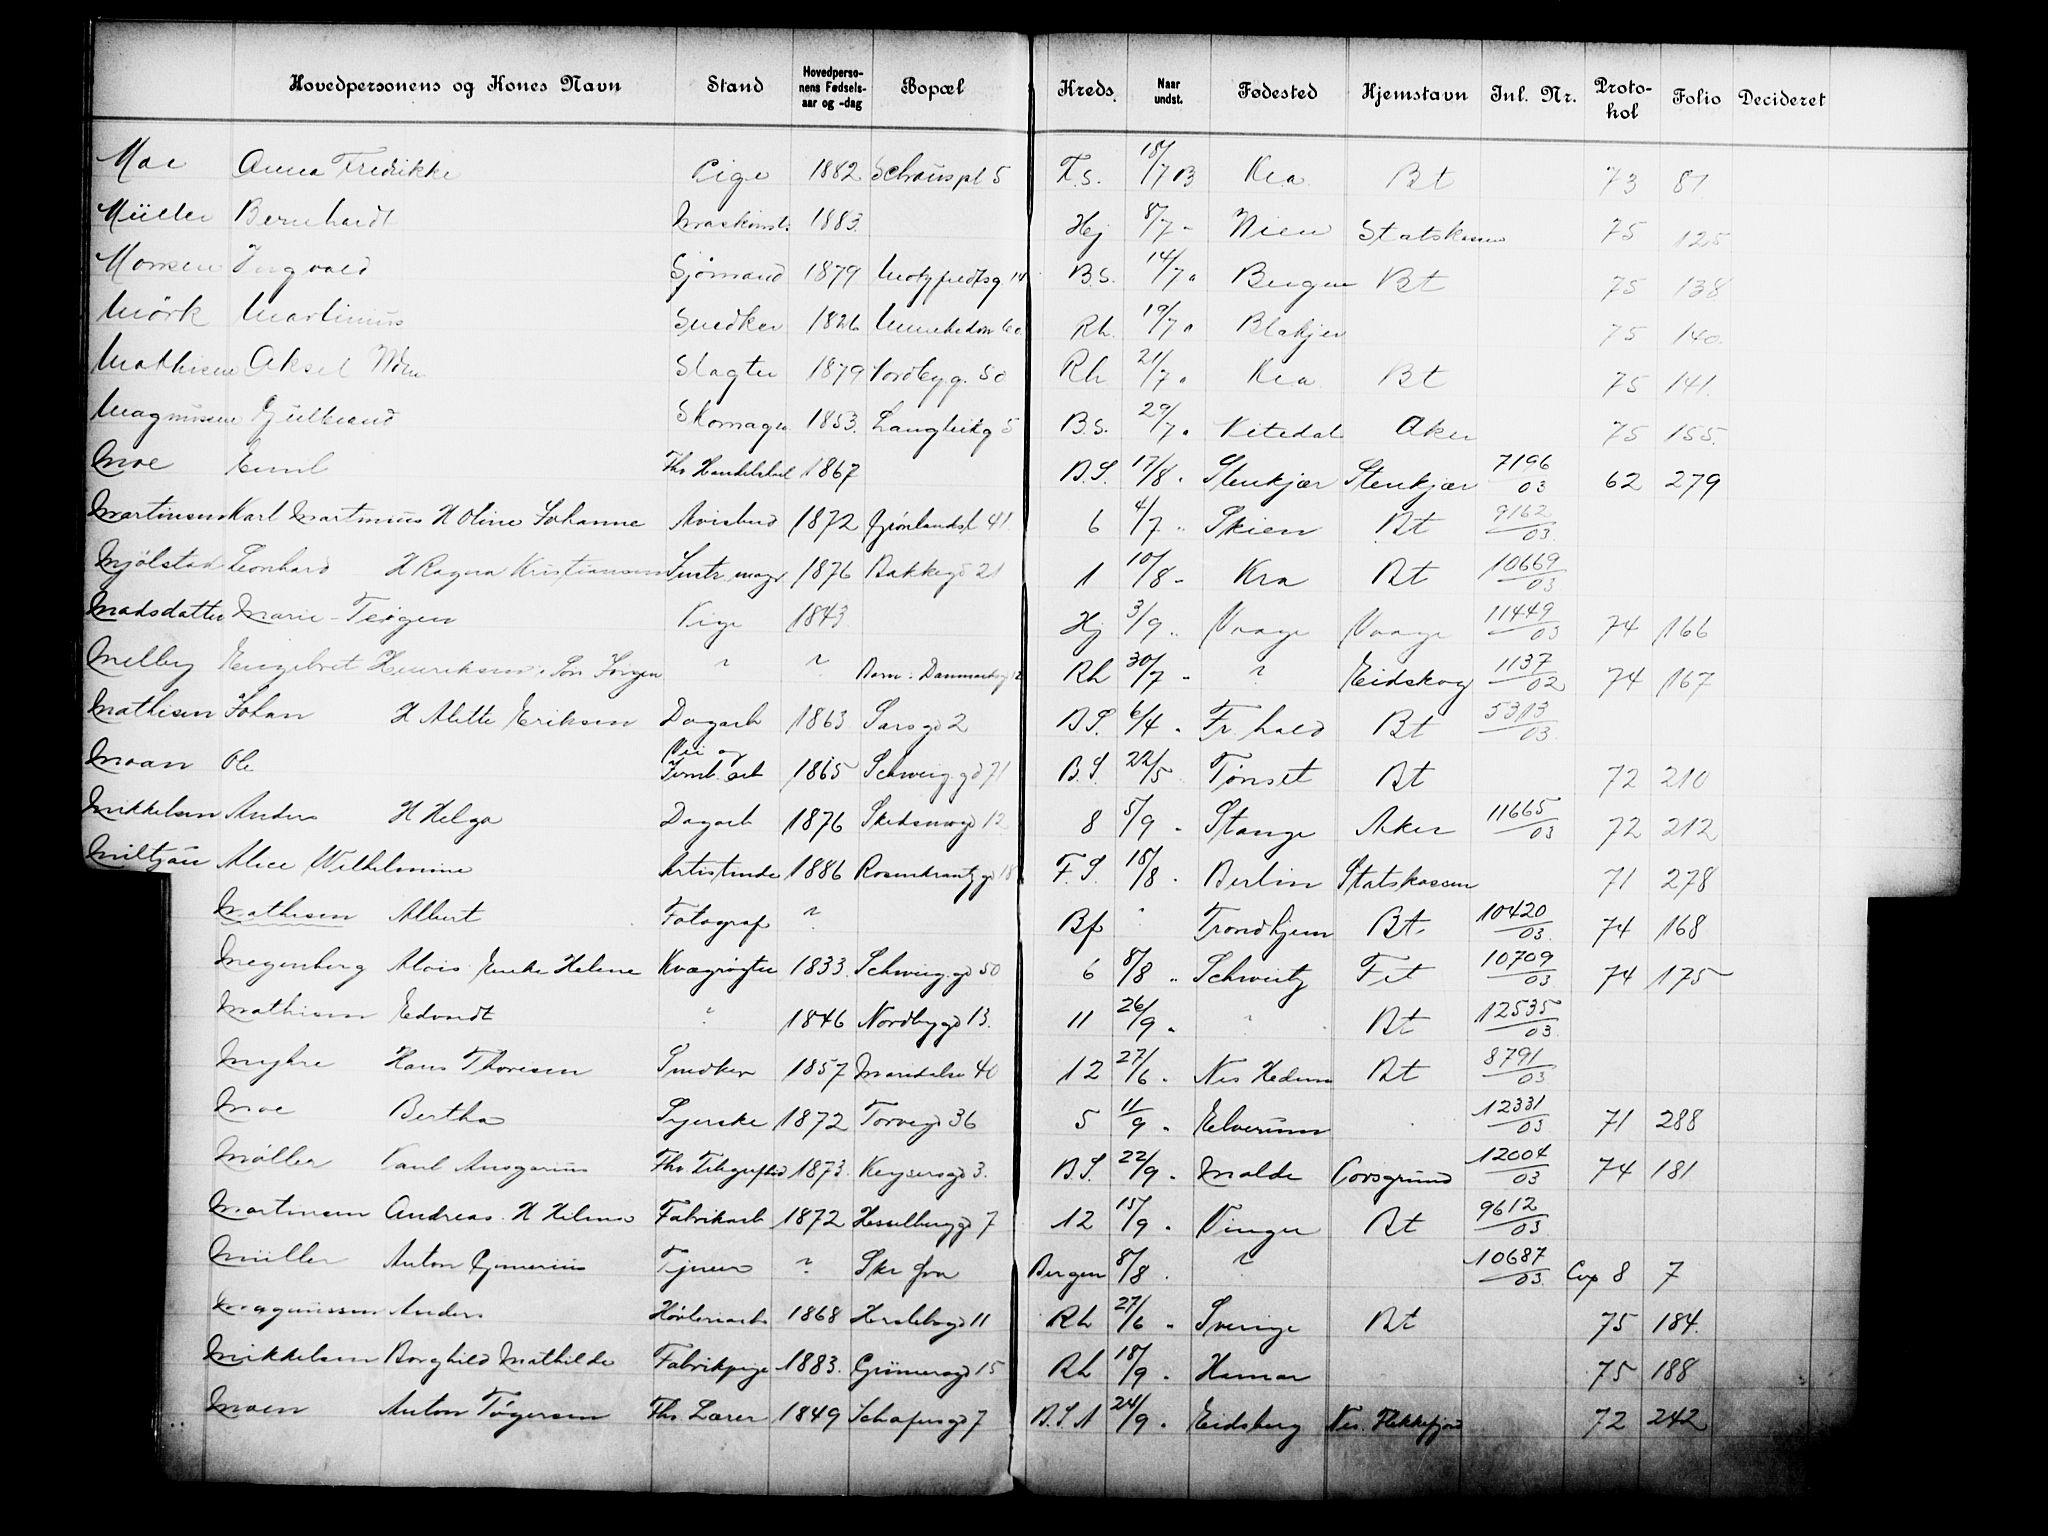 Hovedpersonens og Kones Navn Stand Hovedperso-nens Fødsels-aar og -dag Bopæl Kreds. Naar undst. Fødested Hjemstavn Inl. Nr. Proto-hol Folio Decideret
Moe Anna Fredrikke Pige 1882 Schouspl 5 F.S. 18/7 03 Kra Bt 73 81
Müller Bernhardt Maskinist 1883. Hej 8/7 " Wien Statskassen 75 125
Monsen Ingvald Sjømand 1879 14 B.S. 14/7 " Bergen Bt 75 138
Mörk Martinius Snedker 1826 Munkedam 60 Rh. 19/7 " Blakjer 75 140.
Mathisen Aksel Wilm Slagter 1879 Nordbyg. 50 Rh 21/7 " Kra Bt 75 141.
Magnussen Gulbrand Skomager 1853. Langleikg 5 B.S. 29/7 " Aker 75 155.
Moe Emil Fhv Handelsbest 1867 B.S. 17/8 " Stenkjær Stenkjær 7196/03 62 279
Martinsen Karl Martinius H Oline Johanne Avisbud 1872 Grønlandsl 41. 6 4/7 " Skien Bt 9162/03.
Mjölstad Leonhard H Ragna Kristiansen Instr.mager 1876 Bakkegd 21 1 10/8 " Kra Bt 10669/03
Madsdatter Marie Teigen Pige 1843 Hj 3/9 " Vaage Vaage 11449/03 74 166
Melby Engebret Henriksen, Søn Jørgen " " Barn: Danmarksg 12 Rh 30/7 " ? Eidskog 1137/02 74 167
Mathisen Johan H Alette Eriksen Dagarb 1863 Sarsgd 2 B.S. 6/4 " Fr.hald Bt 5313/03.
Moan Ole Vei og Jernb.arb 1865 Schweig.gd 71 B.S. 22/5 Tønset Bt 72 210
Mikkelsen Anders H Helga Dagarb 1876 Skedsmogd 12 8 5/9 " Stange Aker 11665/03 72 212
Alice Wilhelmine Artistinde 1886 Rosenkrantzgd 18 F.S. 18/8 " Berlin Statskassen 71 278
Mathisen Albert Fotograf ? Bp " Trondhjem Bt. 10420/03. 74 168
Megenberg Alois Enke Helene Kvægrögter 1833. Schweig.gd 50 6 8/8 " Schweitz Fet 10709/03. 74 175
Mathisen Edvardt " 1846 Nordbygd 13. 11 26/9 " " Bt 12535/03.
Myhre Hans Thoresen Snedker 1857 Maridalsv 40 12 27/6 " Nes Hedem Bt 8791/03
Moe Bertha Syerske 1872 Torvegd 36 5 11/9 " Elverum 12331/03 71 288
Møller Paul Ansgarius Fhv. Telegrafbud 1873. Keysersgd 3. B.S. 22/9 " Molde Porsgrund 12004/03 74 181
Martinsen Andreas. H Helma Fabrikarb 1872 Hesselberggd 7 12 15/9 " Vinger Bt 9612/03.
Müller Anton Tjener ? Skr fra Bergen 8/8 . ? 10687/03. Cop 8 7
Magnussen Anders Høvleriarb 1868 Herslebsgd 11 Rh 27/6 " Sverige Bt 75 184.
Mikkelsen Borghild Mathilde Fabrikpige 1883. Grünersgd 15 Rh 18/9 " Hamar 75 188
Moen Anton Tøgersen Fhv. Lærer 1849 Schafersgd 7 B.S.A 24/9 " Eidsberg Nes. Flekkefjord 72 242